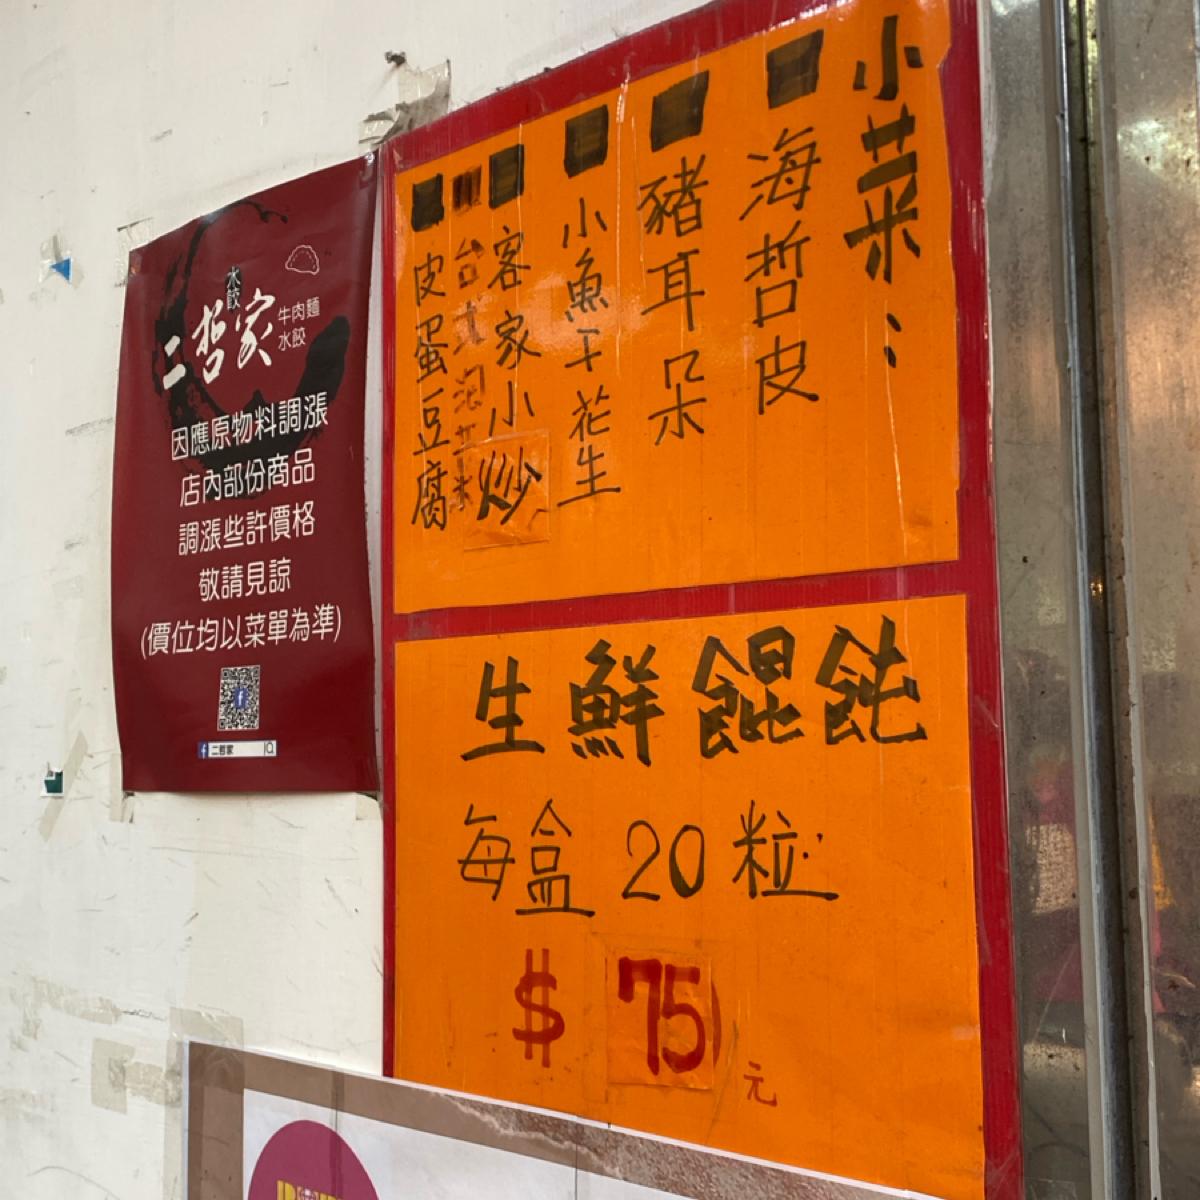 水餃
二哲家
牛肉麵
水餃
因應原物料調漲
店內部份商品
調漲些許價格
敬請見諒
(價位均以菜單為準)
二哲家
小菜：
海哲皮
豬耳朵
小魚干花生
客家小炒
台式泡菜
皮蛋豆腐
生鮮餛飩
每盒20粒
$75元